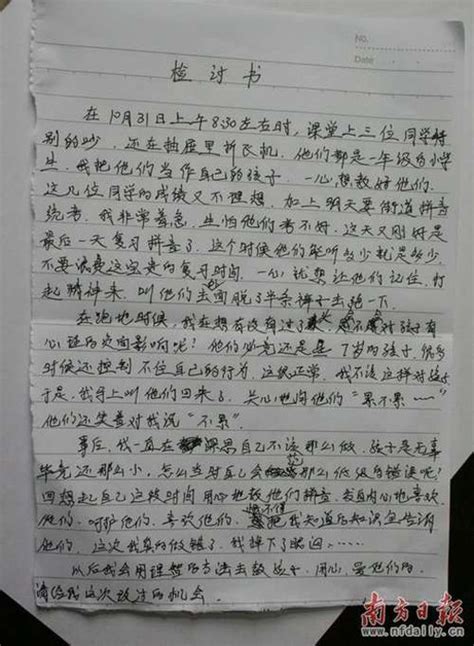 No.
Date
检讨书
在10月31日上午8:30左右时，课堂上三位同学特
别的吵，还在抽屉里折飞机，他们都是一年级的小学
生，我把他们当作自己的孩子，一心想教好他们。
这几位同学的成绩又不理想，加上明天要街道拼音
统考，我非常着急，生怕他们考不好，这天又刚好是
最后一天复习拼音了，这个时候他们能听多少就是多少，
不要浪费这宝贵的复习时间，一心就想让他们记住，打
起精神来，叫他们去外面脱了半条裤子去跑一下，
在跑的时候，我在想有没有过了，会不会对孩子有
心理的负面影响呢？他们必竟还是 7岁的孩子，很多
时候还控制不住自己的行为，这很正常，我不该这样对孩子
于是，我马上叫他们回来了，关心地问他们“累不累……”
他们还笑着对我说“不累”。
事后，我一直在深思自己不该那么做，孩子是无辜
毕竟还那么小，怎么当时自己会那么低级的错误呢？
回想起自己这段时间用心地教他们拼音，发自内心地喜欢
他们，呵护他们，喜欢他们，恨不得把我知道的知识全告诉
他们，这次我真的做错了，我掉下了眼泪……
以后我会用理智的方法去教孩子，用心，爱他们的，
请给我这次改过的机会
南方日报
www.nfdaily.cn